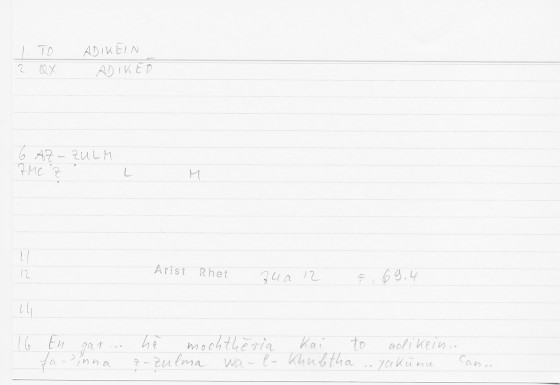 1 TO ADIKEIN
2 QX ADIKEO
6 AẒ-ẒULM
7MC Ẓ L M
11
12 Arist Rhet 69.4
14
16 En gar... hē mochthēria kai to adikein..
fa-'inna ẓ-ẓulma wa-l-khubtha .. yakūnu